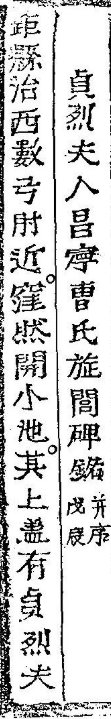 貞烈夫人昌寧曺氏旌閭碑銘 并序 戊辰
距縣治西數弓肘近窪然開小池其上盖有貞烈夫